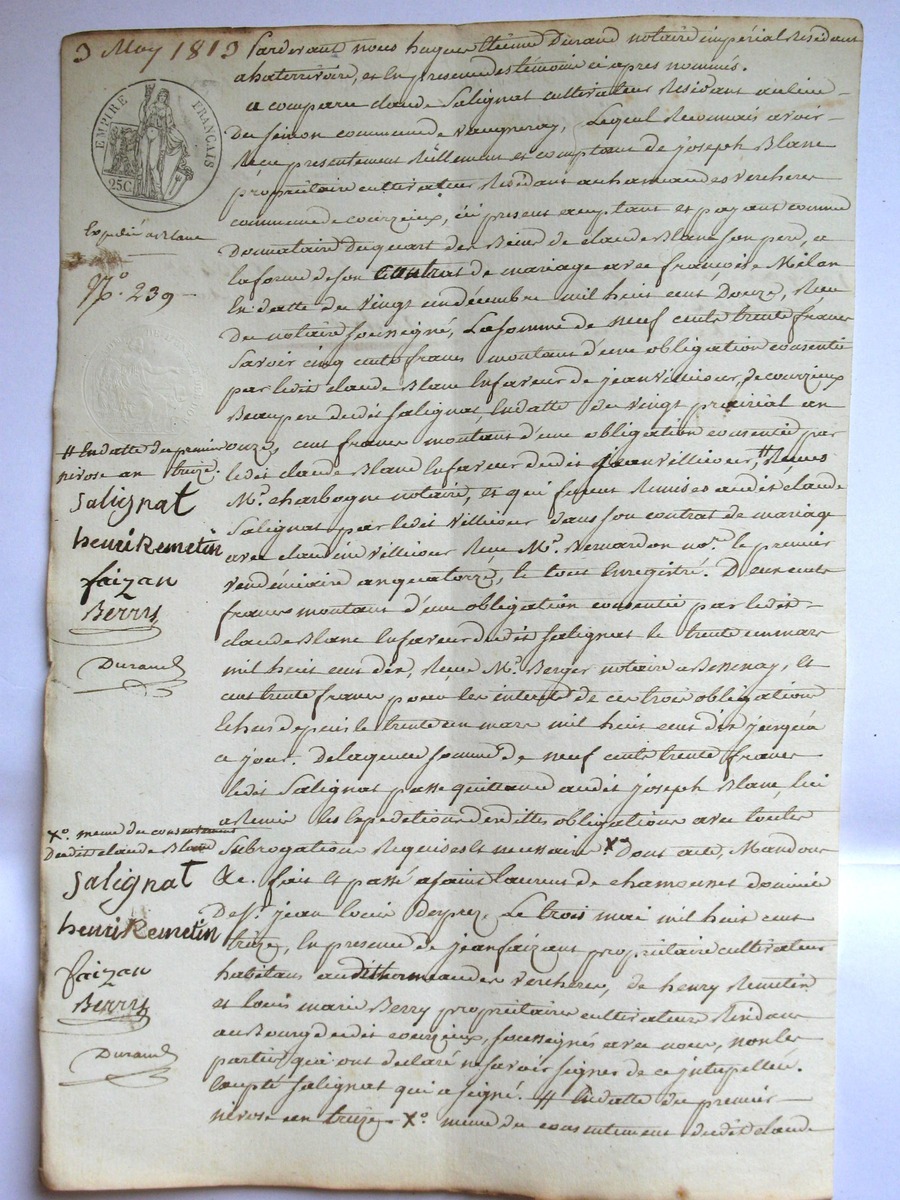 3 May 1813
Pardevant nous hugue Etienne Durand notaire impérial Résidant
a haterivoire, et En presence des témoins ci apres nommés.
EMPIRE FRANÇAIS
25C
a comparu claude Salignat cultivateur Résidant au lieu
De Simon commune de vaugneray, Lequel Reconnais avoir
Recu presentement Rééllement et comptant de joseph Blanc
propriétaire cultivateur Résidant au hameau des vercheres
commune de courzieux, ici present acceptant et payant comme
Expédié a Blanc
Donnataire Du quart des Biens de claude Blanc son pere, a
la forme de son contrat de mariage avec francoise Milan
N.º 239
En datte du vingt un décembre mil huit cent Douze, Recu
Du notaire soussigné, La somme de neuf cents trente francs
Savoir cinq cents francs montant d'une obligation consentie
par ledit claude Blanc En faveur de jean villieur, de courzieux
Beaupere dudit Salignat, En datte du vingt prairial an
onze, cent francs montant d'une obligation consentie par
ledit claude Blanc En faveur dudit jean villieur, # Recues
M.e charbogne notaire, et qui furent Remises audit claude
Salignat par ledit villieur dans son contrat de mariage
avec claudine villieur Recu M.e Bernardon no.re le premier
vendémiaire an quatorze, le tout Enregistré. Deux cents
francs montant d'une obligation consentie par ledit
claude Blanc En faveur dudit Salignat le trente un mars
mil huit cent dix, Recue M.e Berger notaire a Bessenay, Et
cent trente francs pour les interets de ces trois obligations
Echus depuis le trente un mars mil huit cent dix jusqu'a
ce jour. De laquelle somme de neuf cents trente francs
ledit Salignat passe quittance audit joseph Blanc, lui
a Remis les Expéditions desdites obligations avec toutes
Subrogations Requises et necessaire Xº Dont acte, Mandons
&c. fait et passé a saint laurent de chamousset domicile
De S.r jean louis Desprez, Le trois mai mil huit cent
treize, En presence de jean faizant propriétaire cultivateur
habitant audit hameau des vercheres, de henry Remetin
et louis marie Berry propriétaires cultivateurs Résidant
au Bourg dudit courzieux, soussignés avec nous, non les
parties qui ont declaré ne savoir signer de ce interpellées.
Excepté Salignat qui a signé. # En datte du premier
nivose an treize. Xº meme du consentement dudit claude
# En datte du premier
nivose an treize.
Salignat
henri Remetin
faizan
Berry
Durand
Xº. meme du consentement
Dudit claude Blanc
Salignat
henri Remetin
faizan
Berry
Durand